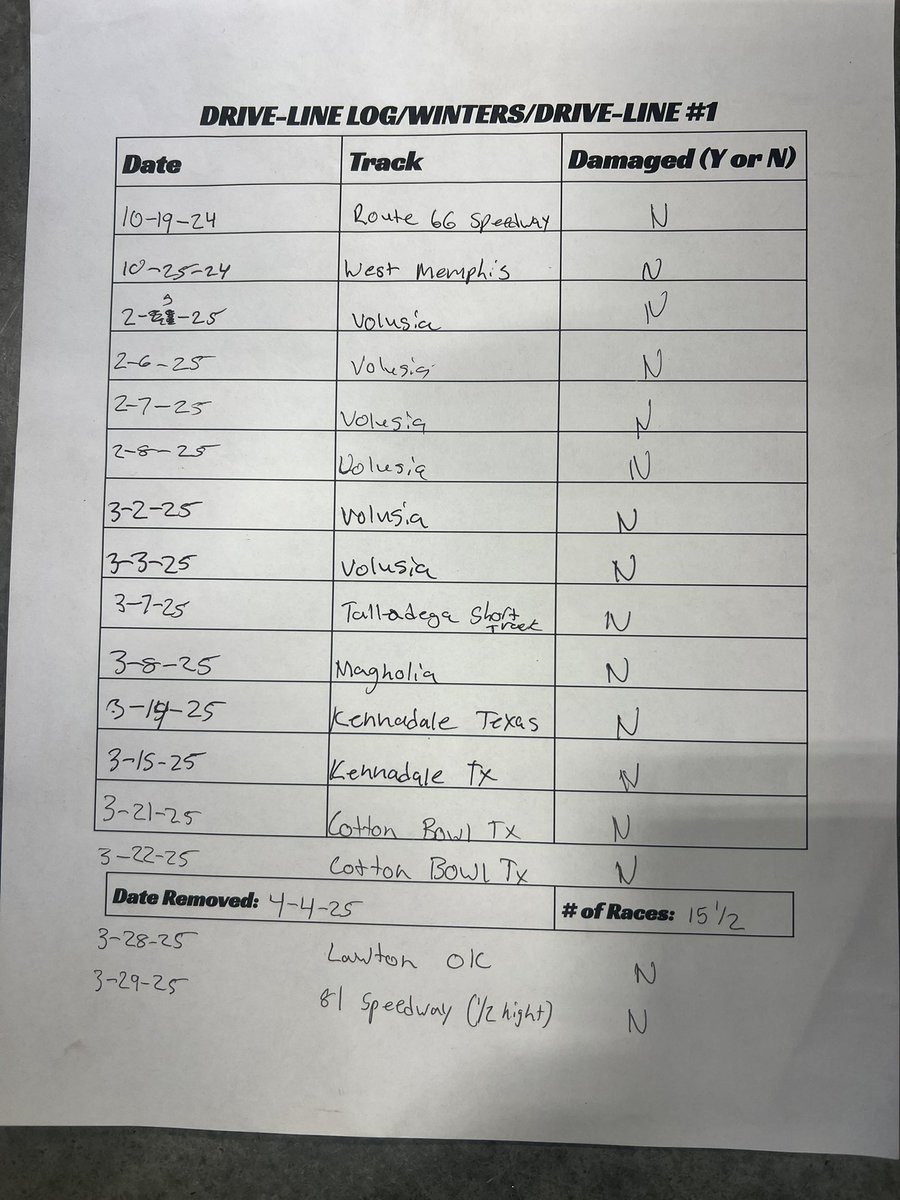 DRIVE-LINE LOG/WINTERS/DRIVE-LINE #1
Date Track Damaged (Y or N)
10-19-24 Route 66 Speedway N
10-25-24 West Memphis N
2-5-25 Volusia N
2-6-25 Volusia N
2-7-25 Volusia N
2-8-25 Volusia N
3-2-25 Volusia N
3-3-25 Volusia N
3-7-25 Talladega Short Track N
3-8-25 Magnolia N
3-14-25 Kennadale Texas N
3-15-25 Kennadale Tx N
3-21-25 Cotton Bowl Tx N
3-22-25 Cotton Bowl Tx N
Date Removed: 4-4-25 # of Races: 15 1/2
3-28-25 Lawton OK N
3-29-25 81 Speedway (1/2 night) N